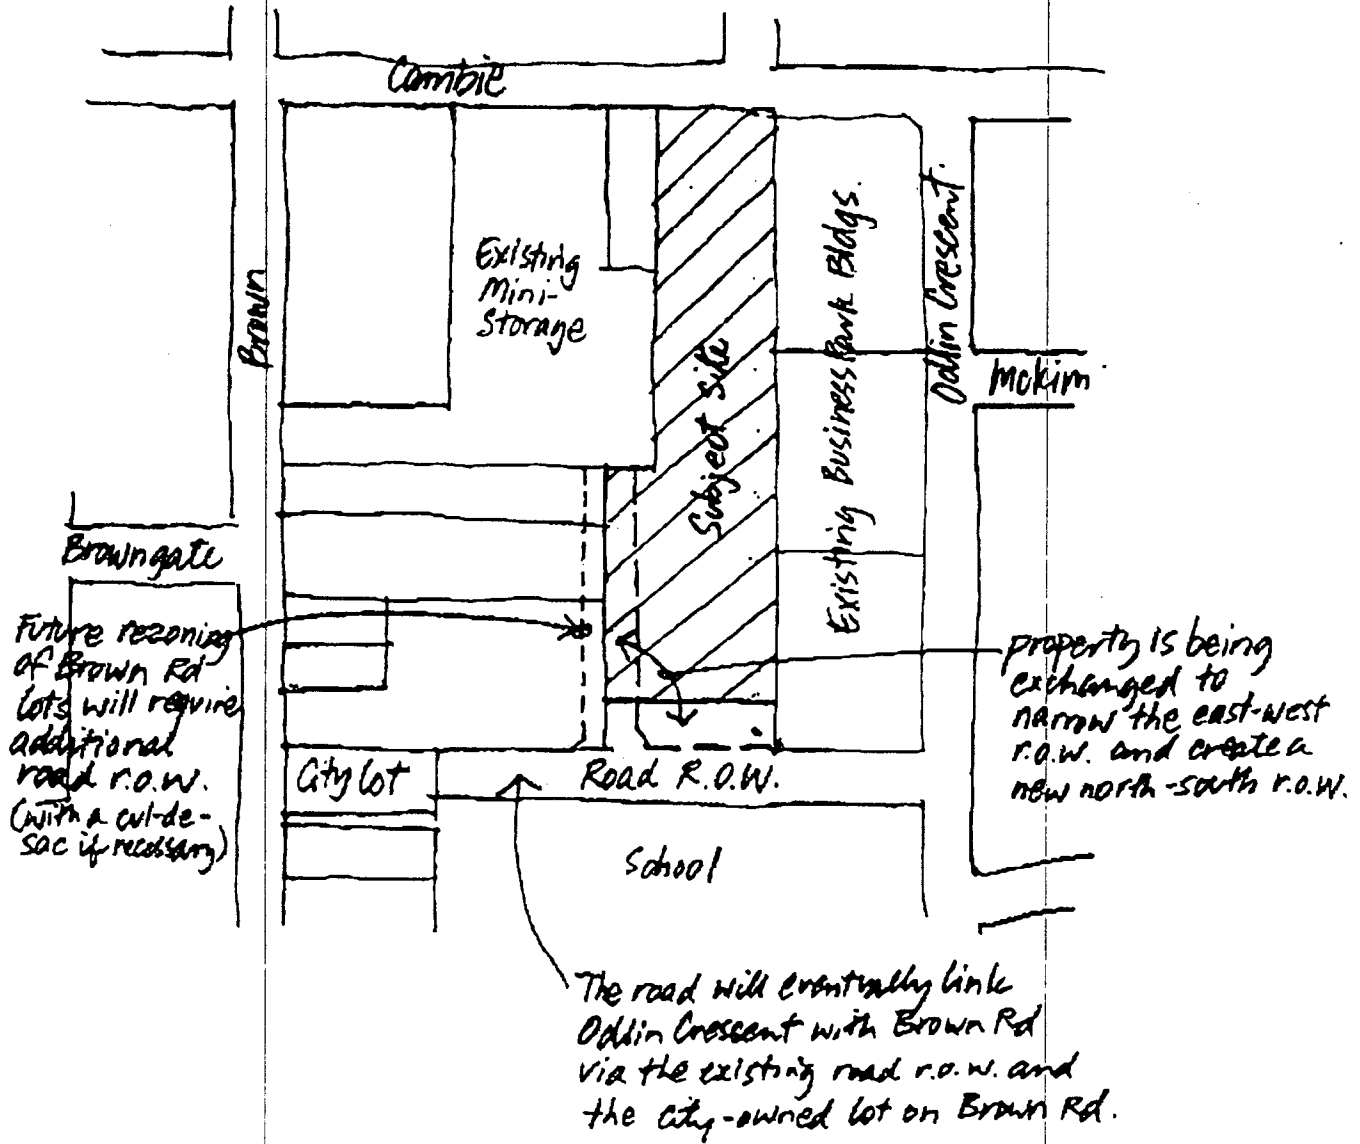 Cambie
Brown
Existing
Mini-
Storage
Subject Site
Existing Business Park Bldgs.
Odlin Crescent.
McKim
Browngate
Future rezoning
of Brown Rd
lots will require
additional
road r.o.w.
(with a cul-de-
sac if necessary)
property is being
exchanged to
narrow the east-west
r.o.w. and create a
new north-south r.o.w.
City lot
Road R.O.W.
School
The road will eventually link
Odlin Crescent with Brown Rd
via the existing road r.o.w. and
the city-owned lot on Brown Rd.